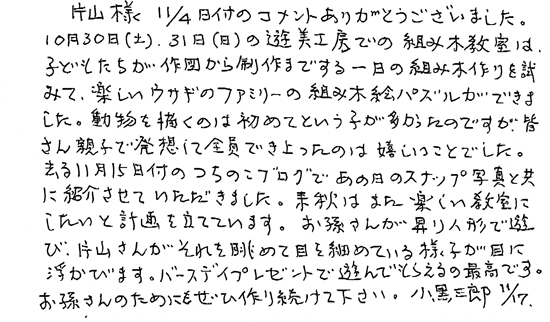 片山様 11/4日付のコメントありがとうございました。
10月30日(土).31日(日)の遊美工房での組み木教室は、
子どもたちが作図から制作までする一日の組み木作りを試
みて、楽しいウサギのファミリーの組み木絵パズルができま
した。動物を描くのは初めてという子が多かったのですが、皆
さん親子で発想して全員でき上ったのは嬉しいことでした。
去る11月15日付のつちのこブログであの日のスナップ写真と共
に紹介させていただきました。来秋はまた楽しい教室に
したいと計画を立てています。お孫さんが昇り人形で遊
び、片山さんがそれを眺めて目を細めている様子が目に
浮かびます。バースデイプレゼントで遊んでもらえるの最高です。
お孫さんのためにもぜひ作り続けて下さい。小黒三郎 11/17.